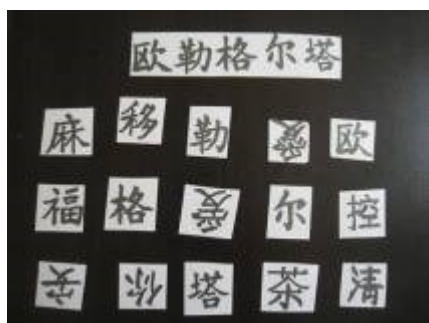 欧勒格尔塔
麻 移 勒 欧
福 格 愛 尔 控
塔 茶 清